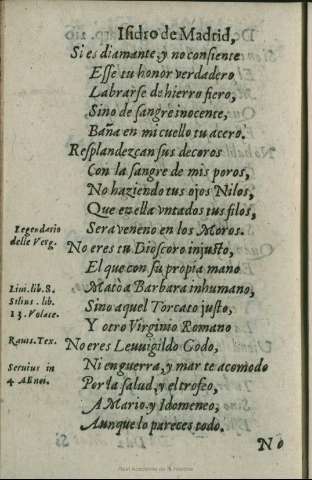 Isidro de Madrid,
Si es diamante, y no consiente
Esse tu honor verdadero
Labrarse de hierro fiero,
Sino de sangre inocente,
Baña en mi cuello tu acero.
Resplandezcan sus decoros
Con la sangre de mis poros,
No haziendo tus ojos Nilos,
Que en ella vntados tus filos,
Sera veneno en los Moros.
Legendario
delle Verg.
No eres tu Dioscoro injusto,
El que con su propia mano
Liui. lib. 8.
Matò a Barbara inhumano,
Silius. lib.
13. Volate.
Sino aquel Torcato justo,
Y otro Virginio Romano
Rauis. Tex.
No eres Leuuigildo Godo,
Seruius in
4 AEnei.
Ni en guerra, y mar te acomodo
Por la salud, y el trofeo,
A Mario, y Idomeneo,
Aunque lo pareces todo.
No
Real Academia de la Historia